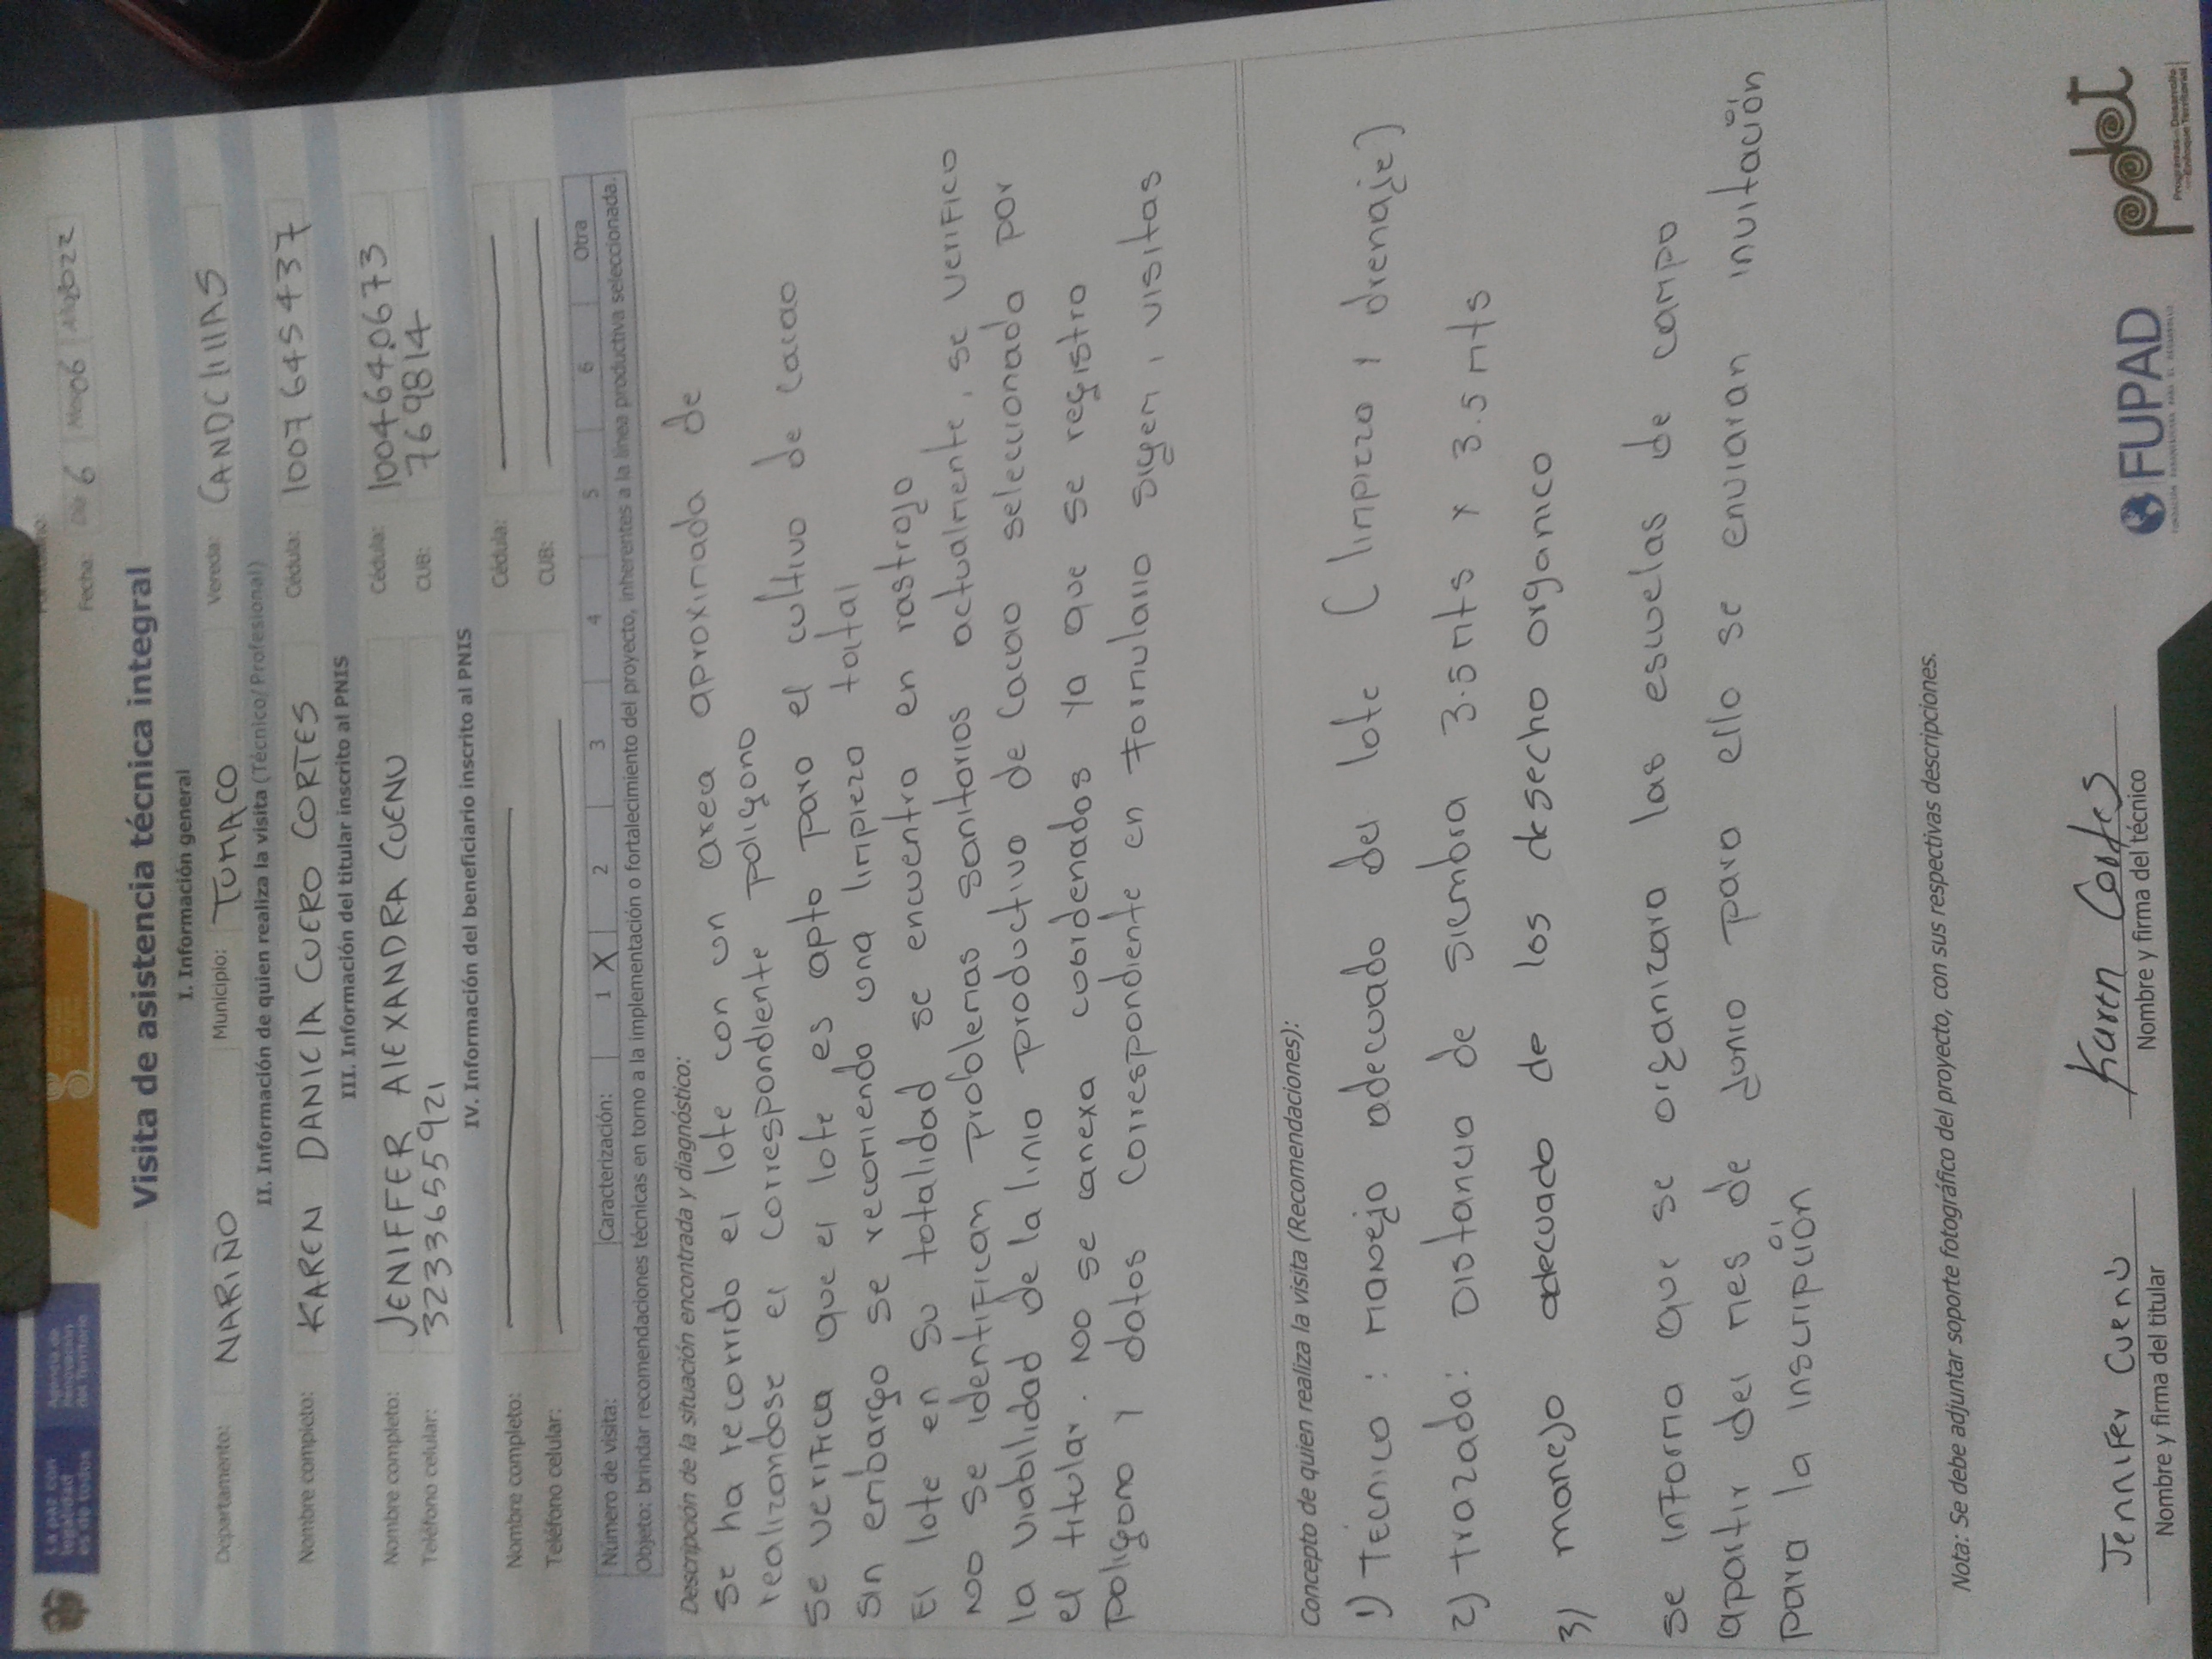 La paz con legalidad es de todos
Agencia de Renovación del Territorio
Fecha: Día 6 Mes 06 Año 2022
Visita de asistencia técnica integral
I. Información general
Departamento: NARIÑO Municipio: TUMACO Vereda: CANDElIllAS
II. Información de quien realiza la visita (Técnico/ Profesional)
Nombre completo: KAREN DANIElA CUERO CORTES Cédula: 1007645437
III. Información del titular inscrito al PNIS
Nombre completo: JENIFFER AlEXANDRA CUENU Cédula: 1004640673
Teléfono celular: 3233655921 CUB: 7698814
IV. Información del beneficiario inscrito al PNIS
Nombre completo: Cédula:
Teléfono celular: CUB:
Número de visita: Caracterización: 1 X 2 3 4 5 6 Otra
Objeto: brindar recomendaciones técnicas en torno a la implementación o fortalecimiento del proyecto, inherentes a la línea productiva seleccionada.
Descripción de la situación encontrada y diagnóstico:
se ha recorrido el lote con un area aproximada de
realizandose el correspondiente poligono
se verifica que el lote es apto para el cultivo de cacao
sin embargo se recomiendo una limpieza toltal
El lote en su totalidad se encuentra en rastrojo
No se identifican problemas sanitorios actualmente, se verifico
la viabilidad de la linia productivo de cacao seleccionado por
el titular. No se anexa cordenados ya que se registro
poligono y datos correspondiente en formulario sigem, visitas
Concepto de quien realiza la visita (Recomendaciones):
1) Técnico: manejo adecuado del lote (limpieza y drenaje)
2) trazada: Distancia de siembra 3.5 mts x 3.5 mts
3) manejo adecuado de los desecho organico
se informa que se organizara las escuelas de campo
apartir del mes de Junio para ello se enviaran invitación
para la inscripción
Nota: Se debe adjuntar soporte fotográfico del proyecto, con sus respectivas descripciones.
Jennifer Cuenú
Nombre y firma del titular
Karen Cortes
Nombre y firma del técnico
FUPAD
FUNDACIÓN PANAMERICANA PARA EL DESARROLLO
pdet
Programas de Desarrollo con Enfoque Territorial